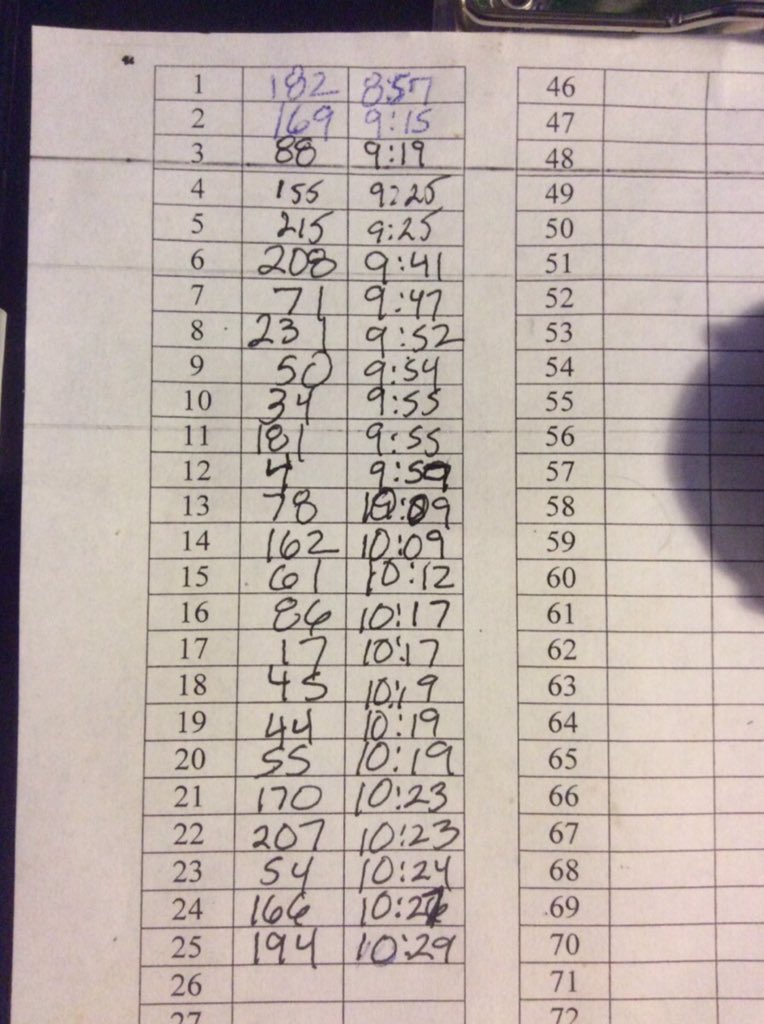 1 182 8:57 46
2 169 9:15 47
3 88 9:19 48
4 155 9:25 49
5 215 9:25 50
6 208 9:41 51
7 71 9:47 52
8 231 9:52 53
9 50 9:54 54
10 34 9:55 55
11 181 9:55 56
12 4 9:59 57
13 78 10:09 58
14 162 10:09 59
15 61 10:12 60
16 86 10:17 61
17 17 10:17 62
18 45 10:19 63
19 44 10:19 64
20 55 10:19 65
21 170 10:23 66
22 207 10:23 67
23 54 10:24 68
24 166 69
25 194 10:29 70
26 71
27 72